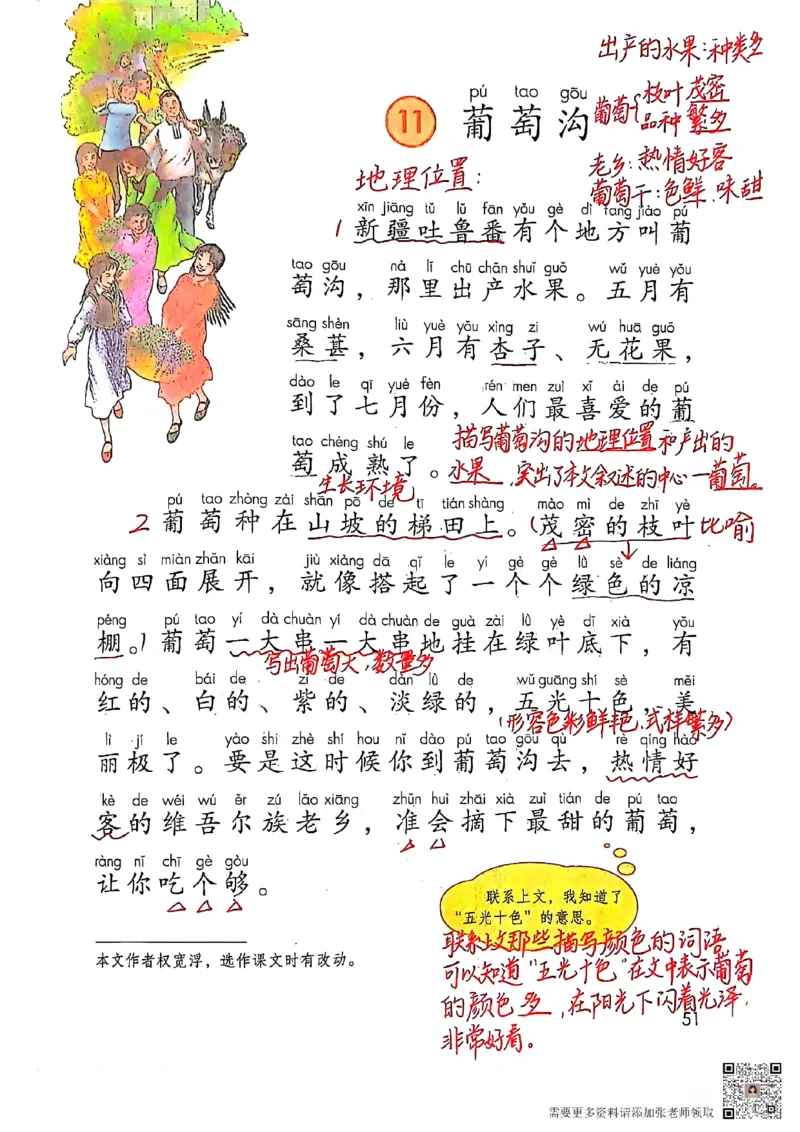 出产的水果：种类多
pú tao gōu
11 葡萄沟
葡萄{枝叶茂密
品种繁多
老乡：热情好客
葡萄干：色鲜、味甜
地理位置：
xīn jiāng tǔ lǔ fān yǒu gè dì fang jiào pú
1 新疆吐鲁番有个地方叫葡
tao gōu nà lǐ chū chǎn shuǐ guǒ wǔ yuè yǒu
萄沟，那里出产水果。五月有
sāng shèn liù yuè yǒu xìng zi wú huā guǒ
桑葚，六月有杏子、无花果，
dào le qī yuè fèn rén men zuì xǐ ài de pú
到了七月份，人们最喜爱的葡
tao chéng shú le
萄成熟了。
描写葡萄沟的地理位置和产出的
水果，突出了本文叙述的中心—葡萄。
生长环境
pú tao zhòng zài shān pō de tī tián shàng mào mì de zhī yè
2 葡萄种在山坡的梯田上。(茂密的枝叶 比喻
xiàng sì miàn zhǎn kāi jiù xiàng dā qǐ le yí gè gè lǜ sè de liáng
向四面展开，就像搭起了一个个绿色的凉
péng pú tao yí dà chuàn yí dà chuàn de guà zài lǜ yè dǐ xià yǒu
棚。) 葡萄一大串一大串地挂在绿叶底下，有
写出葡萄大，数量多
hóng de bái de zǐ de dàn lǜ de wǔ guāng shí sè měi
红的、白的、紫的、淡绿的，五光十色，美
(形容色彩鲜艳，式样繁多)
lì jí le yào shi zhè shí hou nǐ dào pú tao gōu qù rè qíng hào
丽极了。要是这时候你到葡萄沟去，热情好
kè de wéi wú ěr zú lǎo xiāng zhǔn huì zhāi xià zuì tián de pú tao
客的维吾尔族老乡，准会摘下最甜的葡萄，
ràng nǐ chī gè gòu
让你吃个够。
联系上文，我知道了
“五光十色”的意思。
联系上文那些描写颜色的词语
可以知道“五光十色”在文中表示葡萄
的颜色多，在阳光下闪着光泽，
非常好看。
本文作者权宽浮，选作课文时有改动。
51
需要更多资料请添加张老师领取